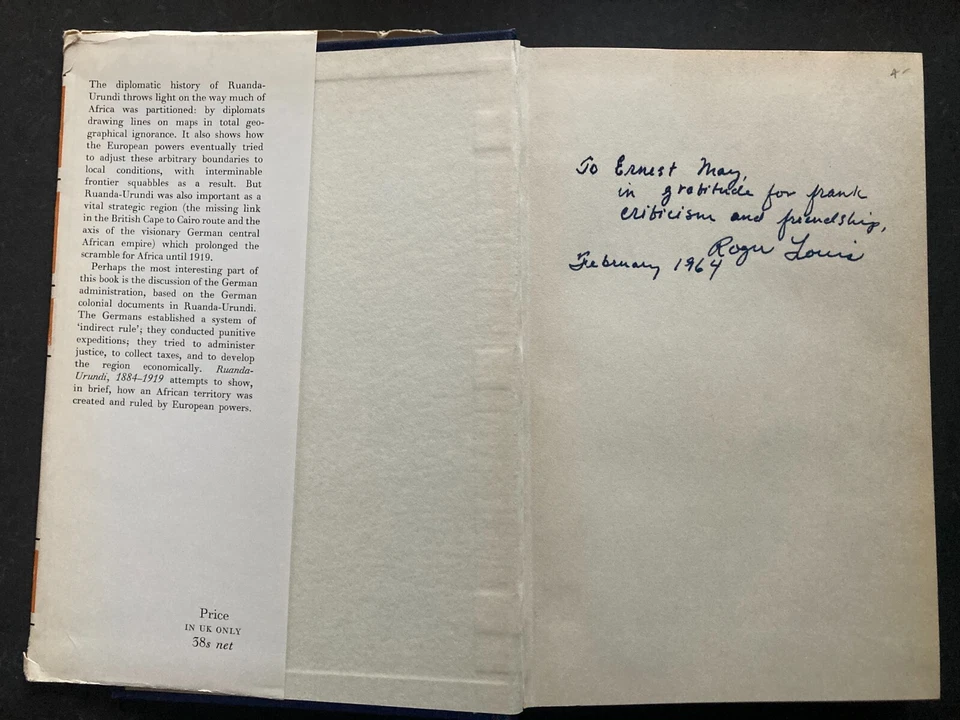 The diplomatic history of Ruanda-
Urundi throws light on the way much of
Africa was partitioned: by diplomats
drawing lines on maps in total geo-
graphical ignorance. It also shows how
the European powers eventually tried
to adjust these arbitrary boundaries to
local conditions, with interminable
frontier squabbles as a result. But
Ruanda-Urundi was also important as a
vital strategic region (the missing link
in the British Cape to Cairo route and the
axis of the visionary German central
African empire) which prolonged the
scramble for Africa until 1919.
Perhaps the most interesting part of
this book is the discussion of the German
administration, based on the German
colonial documents in Ruanda-Urundi.
The Germans established a system of
‘indirect rule’; they conducted punitive
expeditions; they tried to administer
justice, to collect taxes, and to develop
the region economically. Ruanda-
Urundi, 1884–1919 attempts to show,
in brief, how an African territory was
created and ruled by European powers.
Price
IN UK ONLY
38s net
To Ernest May,
in gratitude for frank
criticism and friendship,
Roger Louis
February 1964